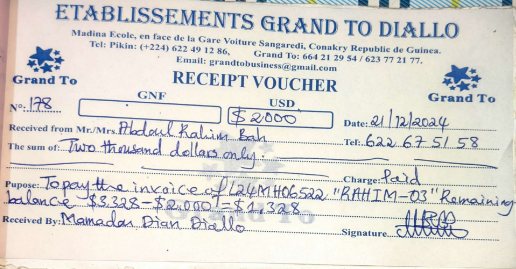 ETABLISSEMENTS GRAND TO DIALLO
Madina Ecole, en face de la Gare Voiture Sangaredi, Conakry Republic de Guinea.
Tel: Pikin: (+224) 622 49 12 86, Grand To: 664 21 29 54 / 623 77 21 77.
Email: grandtobusiness@gmail.com
Grand To
RECEIPT VOUCHER
Grand To
GNF USD
No: 178 $2000 Date: 21/12/2024
Received from Mr./Mrs. Abdoul Rahim Bah Tel: 622 67 51 58
The sum of: Two thousand dollars only.
Charge: Paid
Pupose: To pay the invoice of L24MH06522 "RAHIM-03" Remaining
balance $3.328-$2.000=$1,328
Grand To
Received By: Mamadou Dian Diallo Signature